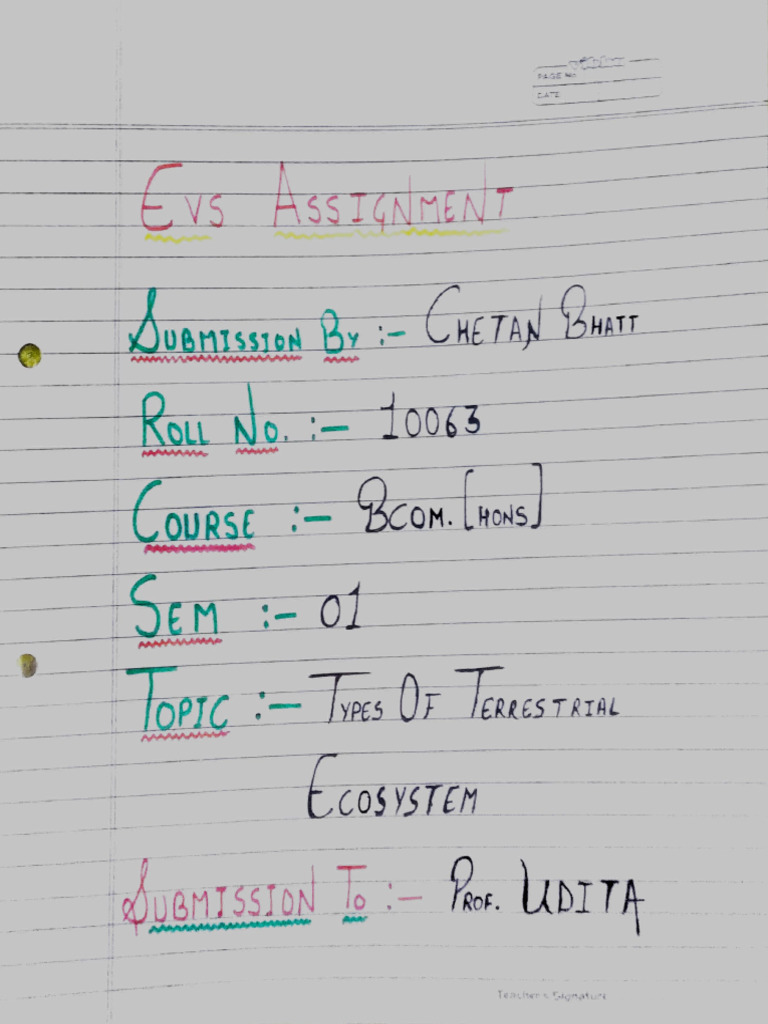 PAGE No.
DATE
EVS ASSIGNMENT
SUBMISSION BY :- CHETAN BHATT
ROLL NO. :- 10063
COURSE :- BCOM. [HONS]
SEM :- 01
TOPIC :- TYPES OF TERRESTRIAL
ECOSYSTEM
SUBMISSION TO :- PROF. UDITA
Teacher's Signature